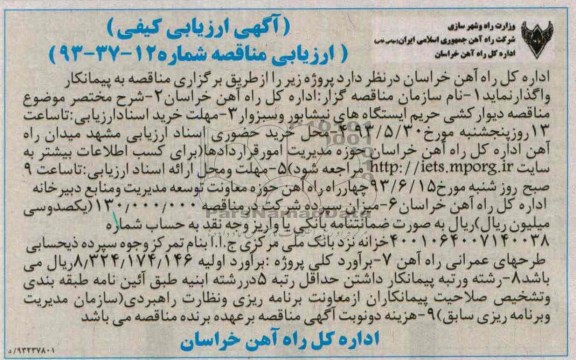 وزارت راه وشهر سازی
شرکت راه آهن جمهوری اسلامی ایران(سهامی خاص)
اداره کل راه آهن خراسان
(آگهی ارزیابی کیفی)
( ارزیابی مناقصه شماره۱۲-۳۷-۹۳ )
اداره کل راه آهن خراسان درنظر دارد پروژه زیر را ازطریق برگزاری مناقصه به پیمانکار
واگذارنماید۱-نام سازمان مناقصه گزار:اداره کل راه آهن خراسان۲-شرح مختصر موضوع
مناقصه دیوار کشی حریم ایستگاه های نیشابور وسبزوار۳-مهلت خرید اسنادارزیابی:تاساعت
۱۳روزپنجشنبه مورخ۹۳/۵/۳۰ ۴-محل خرید حضوری اسناد ارزیابی مشهد میدان راه
آهن اداره کل راه آهن خراسان حوزه مدیریت امورقراردادها(برای کسب اطلاعات بیشتر به
سایت http://iets.mporg.ir مراجعه شود)۵-مهلت ومحل ارائه اسناد ارزیابی:تاساعت ۹
صبح روز شنبه مورخ۹۳/۶/۱۵چهارراه راه آهن حوزه معاونت توسعه مدیریت ومنابع دبیرخانه
اداره کل راه آهن خراسان۶-میزان سپرده شرکت درمناقصه ۱۳۰/۰۰۰/۰۰۰(یکصدوسی
میلیون ریال)ریال به صورت ضمانتنامه بانکی یا واریز وجه نقد به حساب شماره
۴۰۰۱۰۶۴۰۰۷۱۴۰۰۳۸خزانه نزد بانک ملی مرکزی ج.ا.ا بنام تمرکز وجوه سپرده ذیحسابی
طرحهای عمرانی راه آهن ۷-برآورد کلی پروژه :برآورد اولیه ۸/۳۲۴/۱۷۴/۱۴۶ریال می
باشد۸-رشته ورتبه پیمانکار داشتن حداقل رتبه ۵دررشته ابنیه طبق آئین نامه طبقه بندی
وتشخیص صلاحیت پیمانکاران ازمعاونت برنامه ریزی ونظارت راهبردی(سازمان مدیریت
وبرنامه ریزی سابق)۹-هزینه دونوبت آگهی مناقصه برعهده برنده مناقصه می باشد
اداره کل راه آهن خراسان
۹۳۲۳۷۸۰۱/د